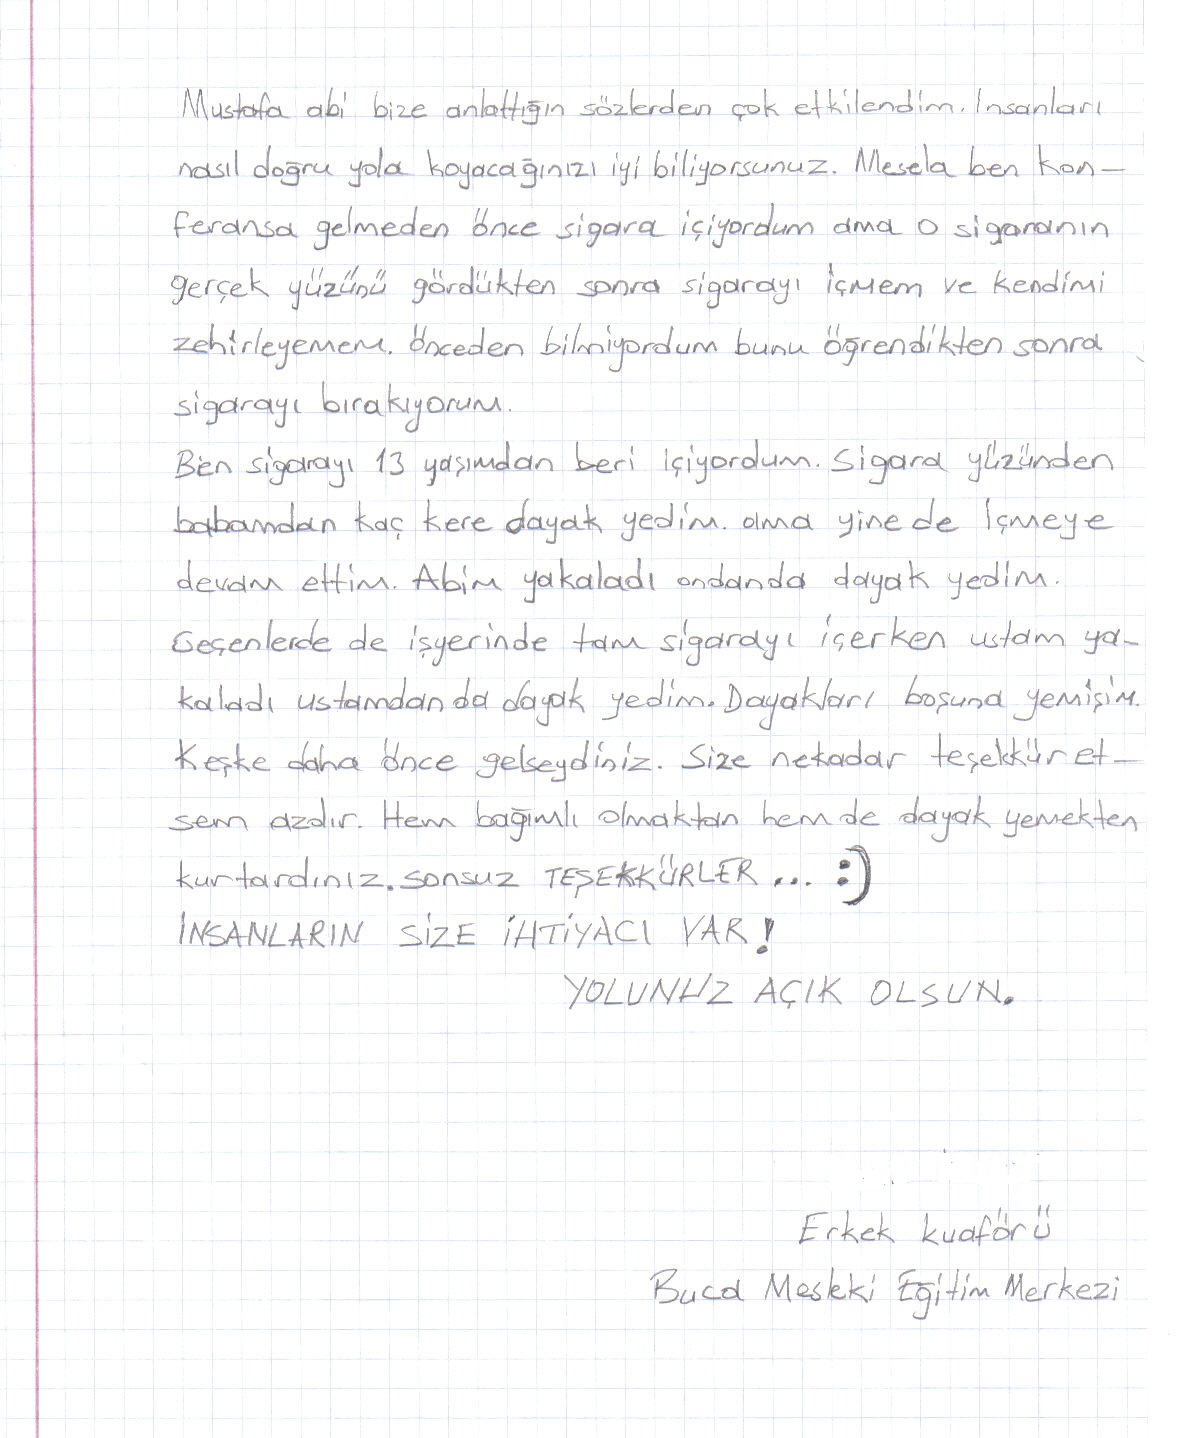 Mustafa abi bize anlattığın sözlerden çok etkilendim. İnsanları
nasıl doğru yola koyacağınızı iyi biliyorsunuz. Mesela ben kon-
feransa gelmeden önce sigara içiyordum ama o sigaranın
gerçek yüzünü gördükten sonra sigarayı içmem ve kendimi
zehirleyemem. Önceden bilmiyordum bunu öğrendikten sonra
sigarayı bırakıyorum.
Ben sigarayı 13 yaşımdan beri içiyordum. Sigara yüzünden
babamdan kaç kere dayak yedim. ama yinede içmeye
devam ettim. Abim yakaladı ondanda dayak yedim.
Geçenlerde de işyerinde tam sigarayı içerken ustam ya-
kaladı ustamdanda dayak yedim. Dayakları boşuna yemişim.
Keşke daha önce gelseydiniz. Size nekadar teşekkür et-
sem azdır. Hem bağımlı olmaktan hemde dayak yemekten
kurtardınız. sonsuz TEŞEKKÜRLER... :)
İNSANLARIN SİZE İHTİYACI VAR!
YOLUNUZ AÇIK OLSUN.
Erkek kuaförü
Buca Mesleki Eğitim Merkezi